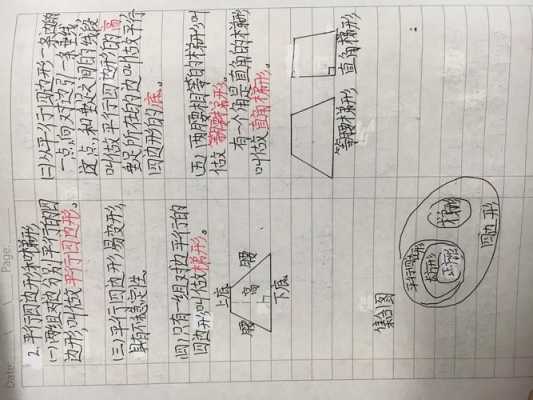 2. 平行四边形和梯形
(一)两组对边分别平行的四
边形,叫做平行四边形。
(二)从平行四边形一条边的
一点向对边引一条垂线,
这点和垂足之间的线段
叫做平行四边形的高
垂足所在的边叫做平行
四边形的底。
(三)平行四边形易变形,
具有不稳定性
(四)只有一组对边平行的
四边形叫做梯形。
上底
腰 高 腰
下底
(五)两腰相等的梯形叫
做等腰梯形。
有一个角是直角的梯形
叫做直角梯形。
等腰梯形 直角梯形
集合图
四边形
平行四边形
长方形
正方形
梯形
Date
Page